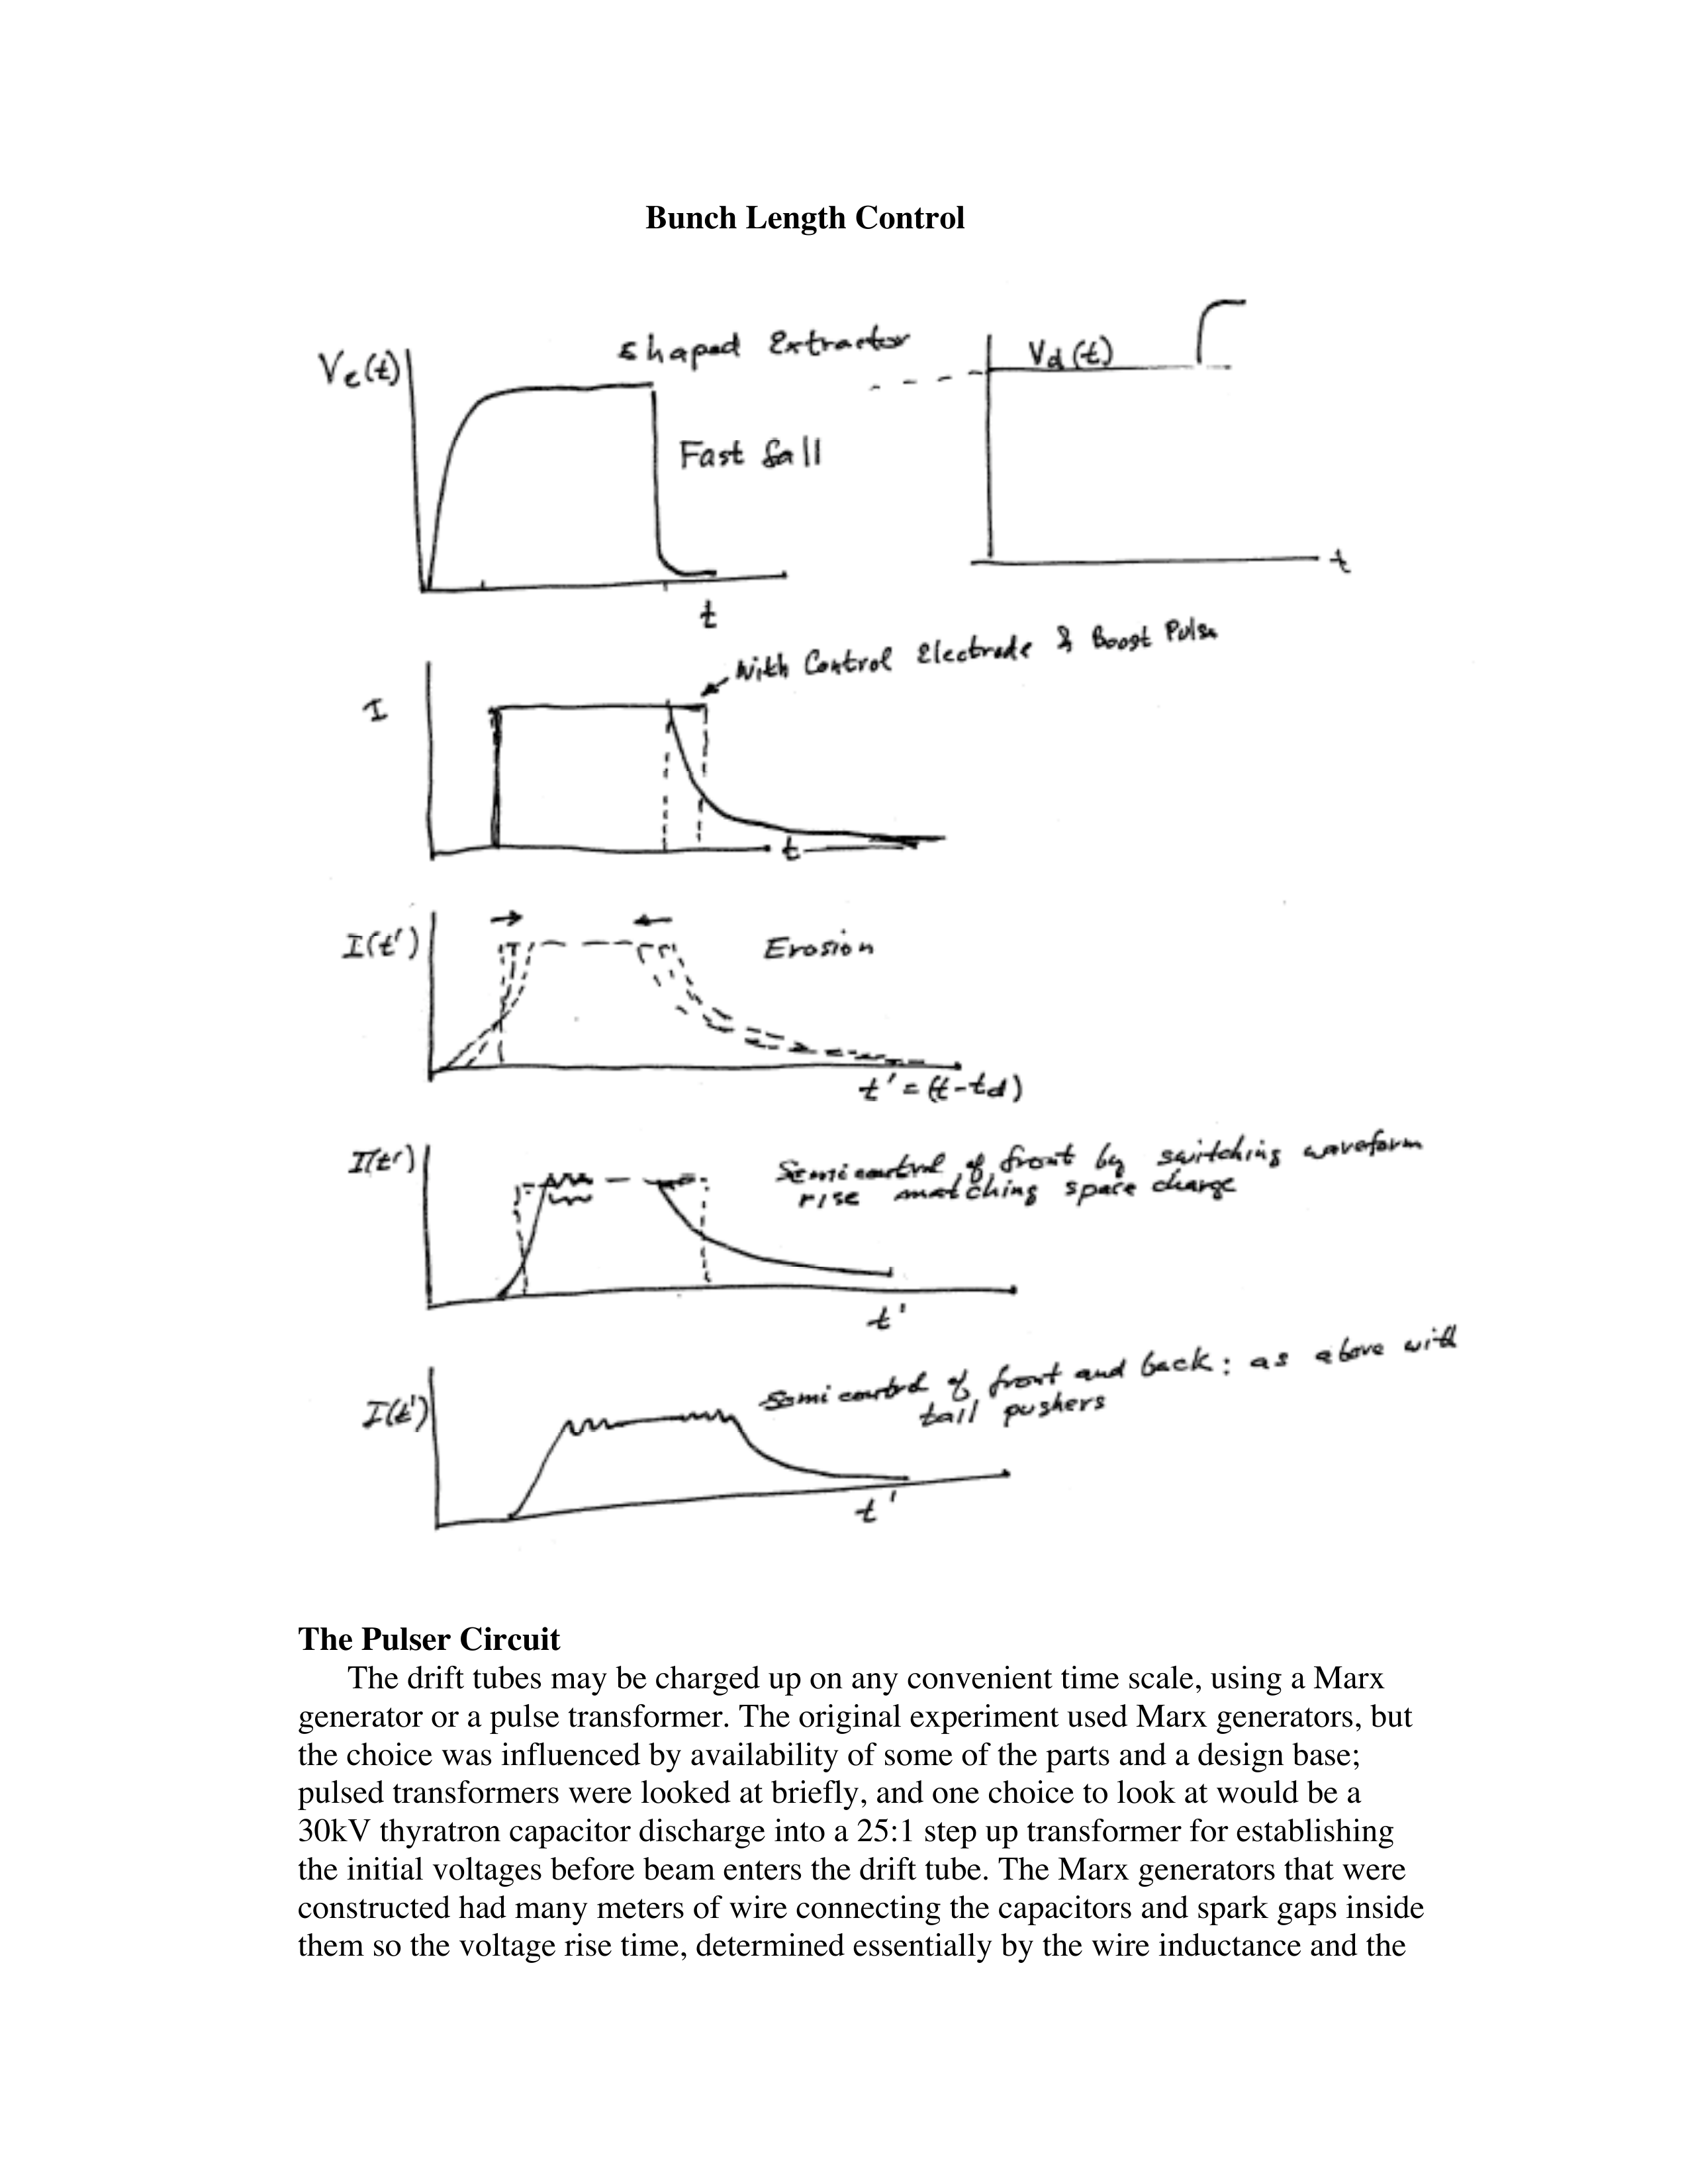 Bunch Length Control
Ve(t)
shaped Extractor
Vd(t)
Fast fall
t
t
With Control Electrode & Boost Pulse
I
t
I(t')
Erosion
t' = (t-td)
I(t')
Semicontrol of front by switching waveform
rise matching space charge
t'
I(t')
Semicontrol of front and back: as above with
tail pushers
t'
The Pulser Circuit
The drift tubes may be charged up on any convenient time scale, using a Marx
generator or a pulse transformer. The original experiment used Marx generators, but
the choice was influenced by availability of some of the parts and a design base;
pulsed transformers were looked at briefly, and one choice to look at would be a
30kV thyratron capacitor discharge into a 25:1 step up transformer for establishing
the initial voltages before beam enters the drift tube. The Marx generators that were
constructed had many meters of wire connecting the capacitors and spark gaps inside
them so the voltage rise time, determined essentially by the wire inductance and the